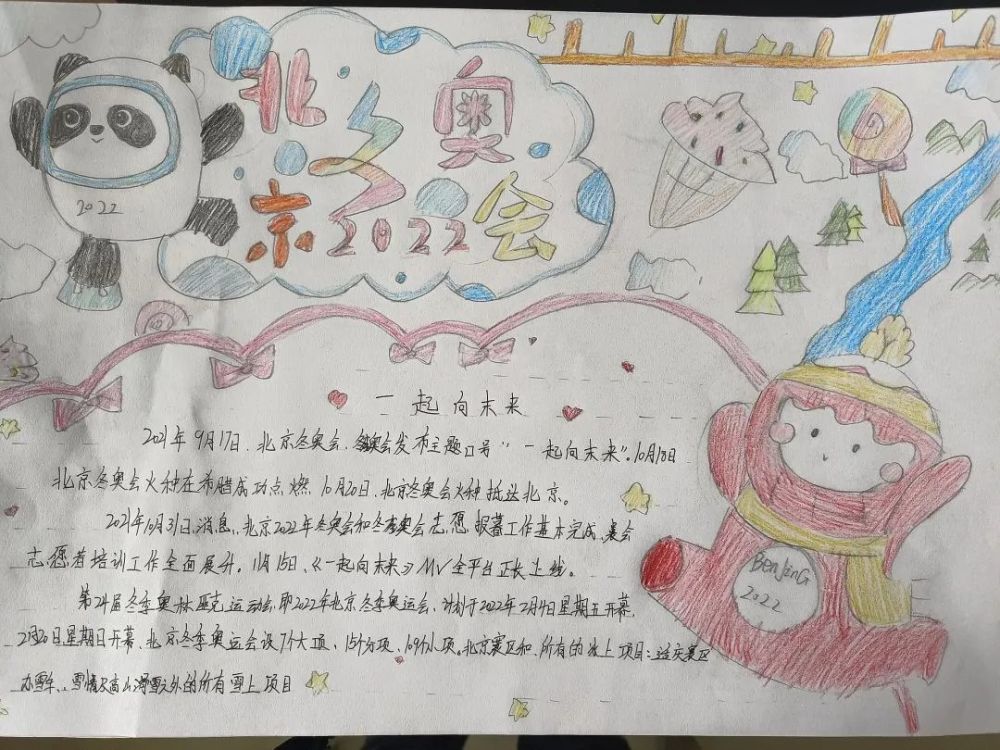 北京冬奥会
2022
2022
一起向未来
2021年9月17日、北京冬奥会、冬残奥会发布主题口号“一起向未来”。10月18日
北京冬奥会火种在希腊成功点燃 10月20日、北京冬奥会火种抵达北京。
2021年10月31日消息、北京2022年冬奥会和冬残奥会志愿 招募工作基本完成、赛会
志愿者培训工作全面展开。11月15日、《一起向未来》MV全平台正长上线。
第24届冬季奥林匹克运动会、即2022年北京冬季奥运会、计划于2022年2月4日星期五开幕
2月20日星期日开幕、北京冬季奥运会设7个大项、15个分项、109个小项。北京赛区和、所有的冰上项目:延庆赛区
办雪车、雪橇及高山滑雪之外的所有雪上项目
BenJinG
2022